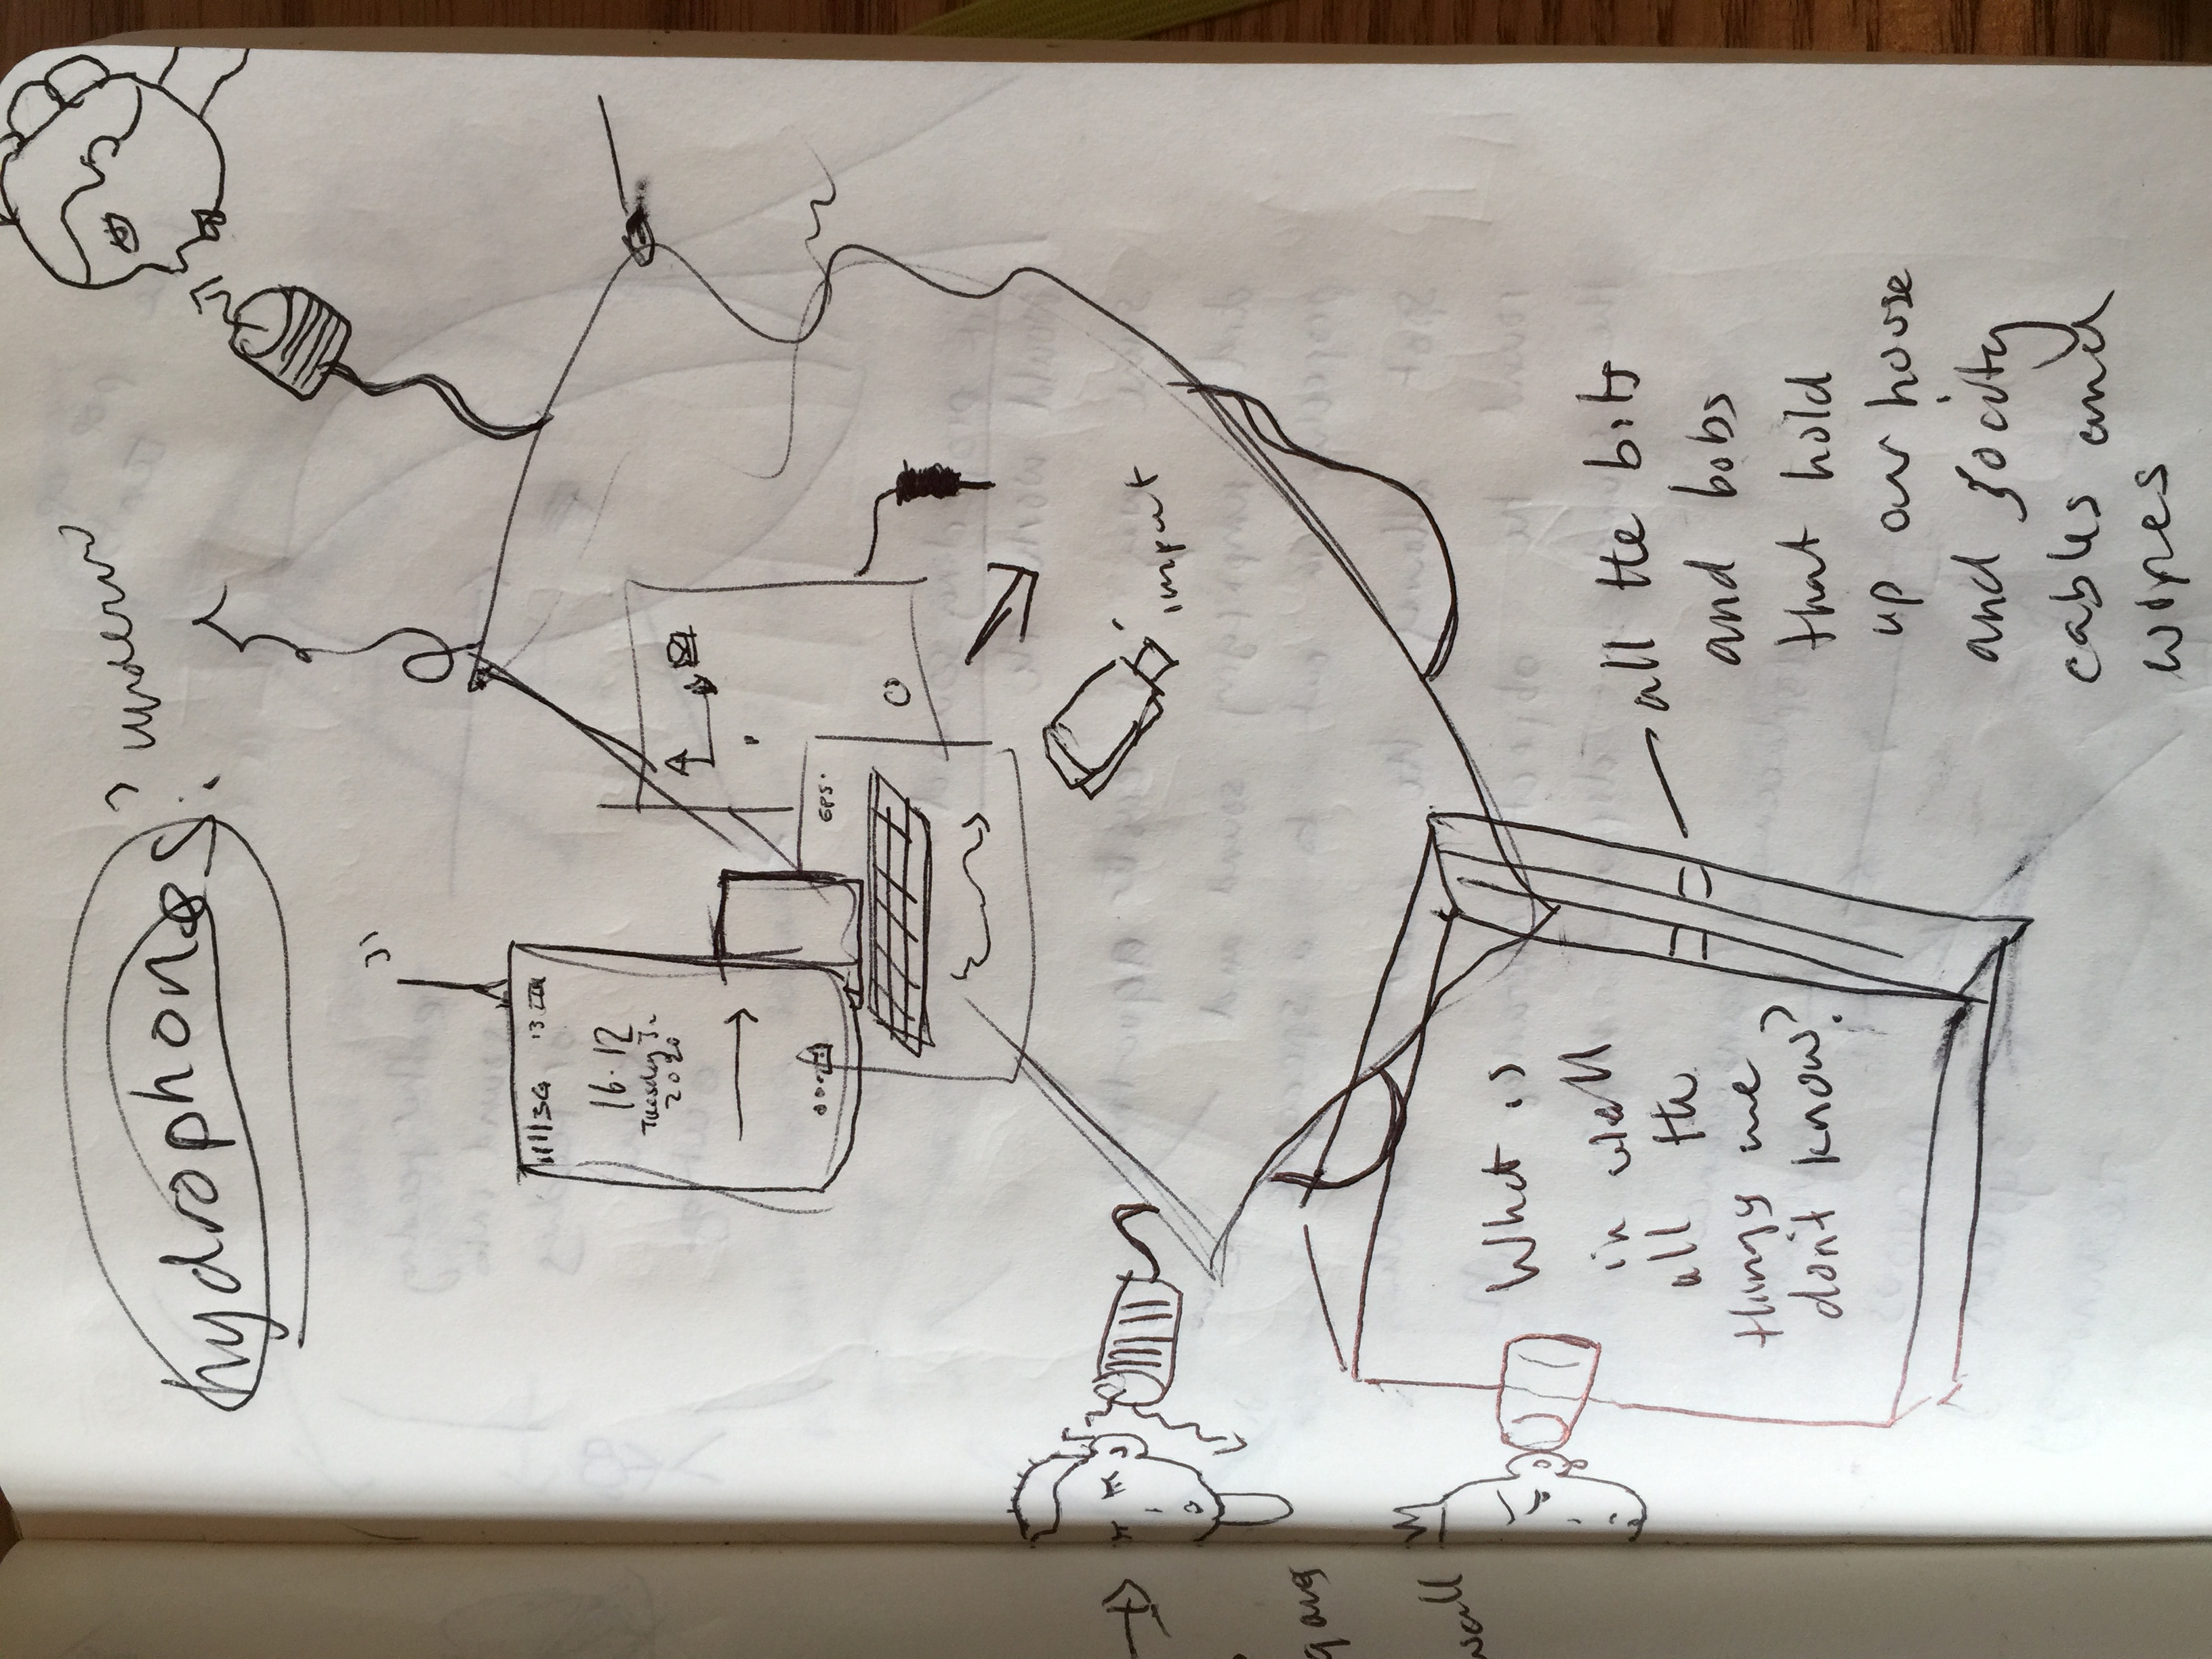 hydrophones:
IIII3G
16.12
Tuesday
2020
GPS.
input
What is
in
all the
things we
don't know?
all the bits
and bobs
that hold
up our house
and
cables and
wall